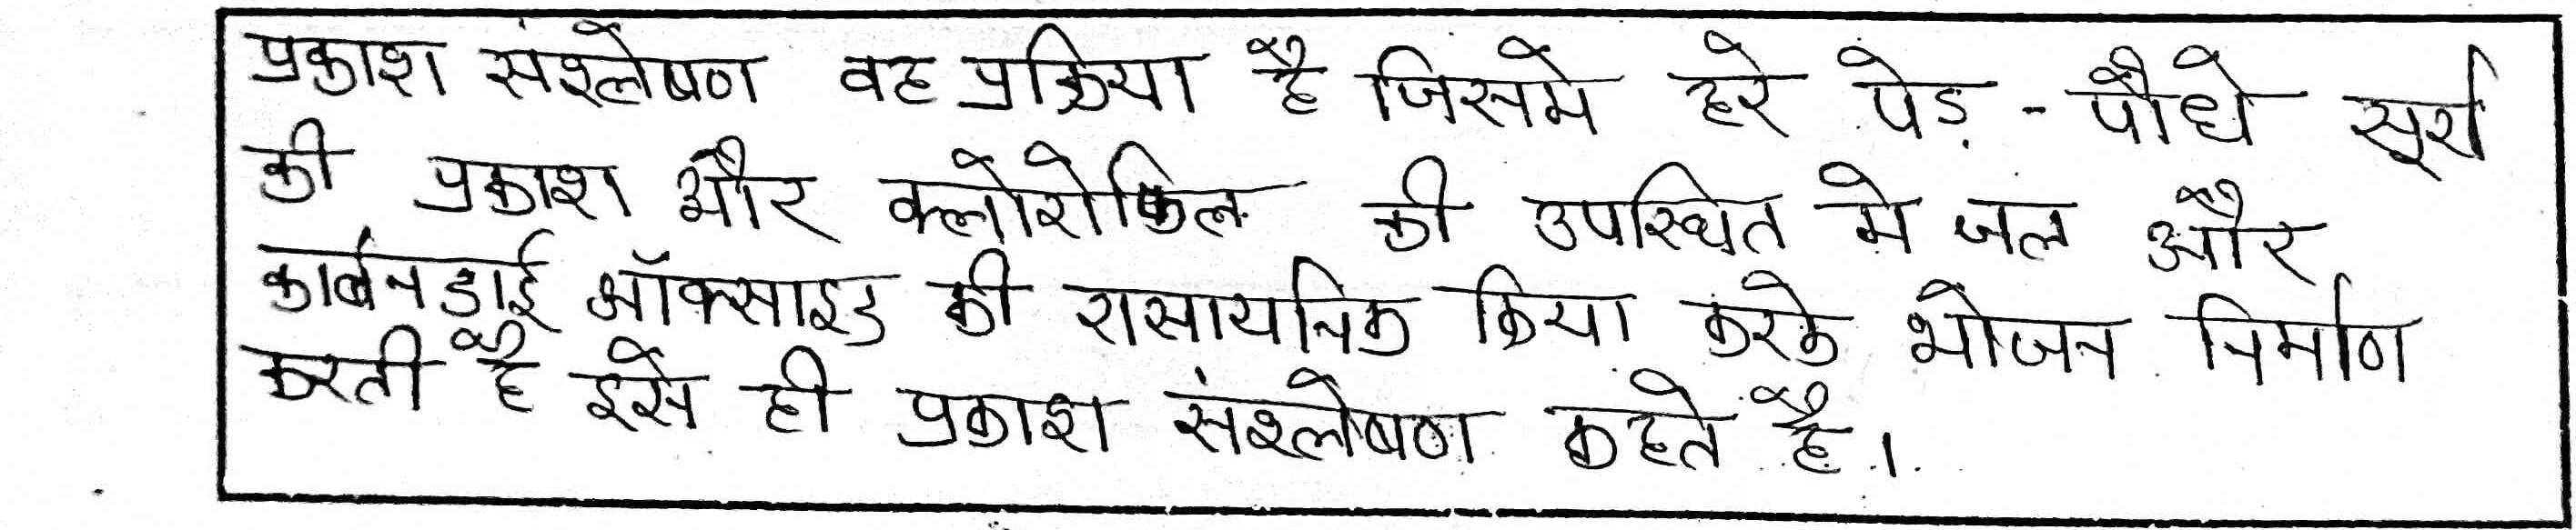 प्रकाश संश्लेषण वह प्रक्रिया है जिसमे हरे पेड़ - पौधे सूर्य
की प्रकाश और क्लोरोफिल की उपस्थित मे जल और
कार्बनडाई ऑक्साइड की रासायनिक क्रिया करके भोजन निर्माण
करती है इसे ही प्रकाश संश्लेषण कहते है।